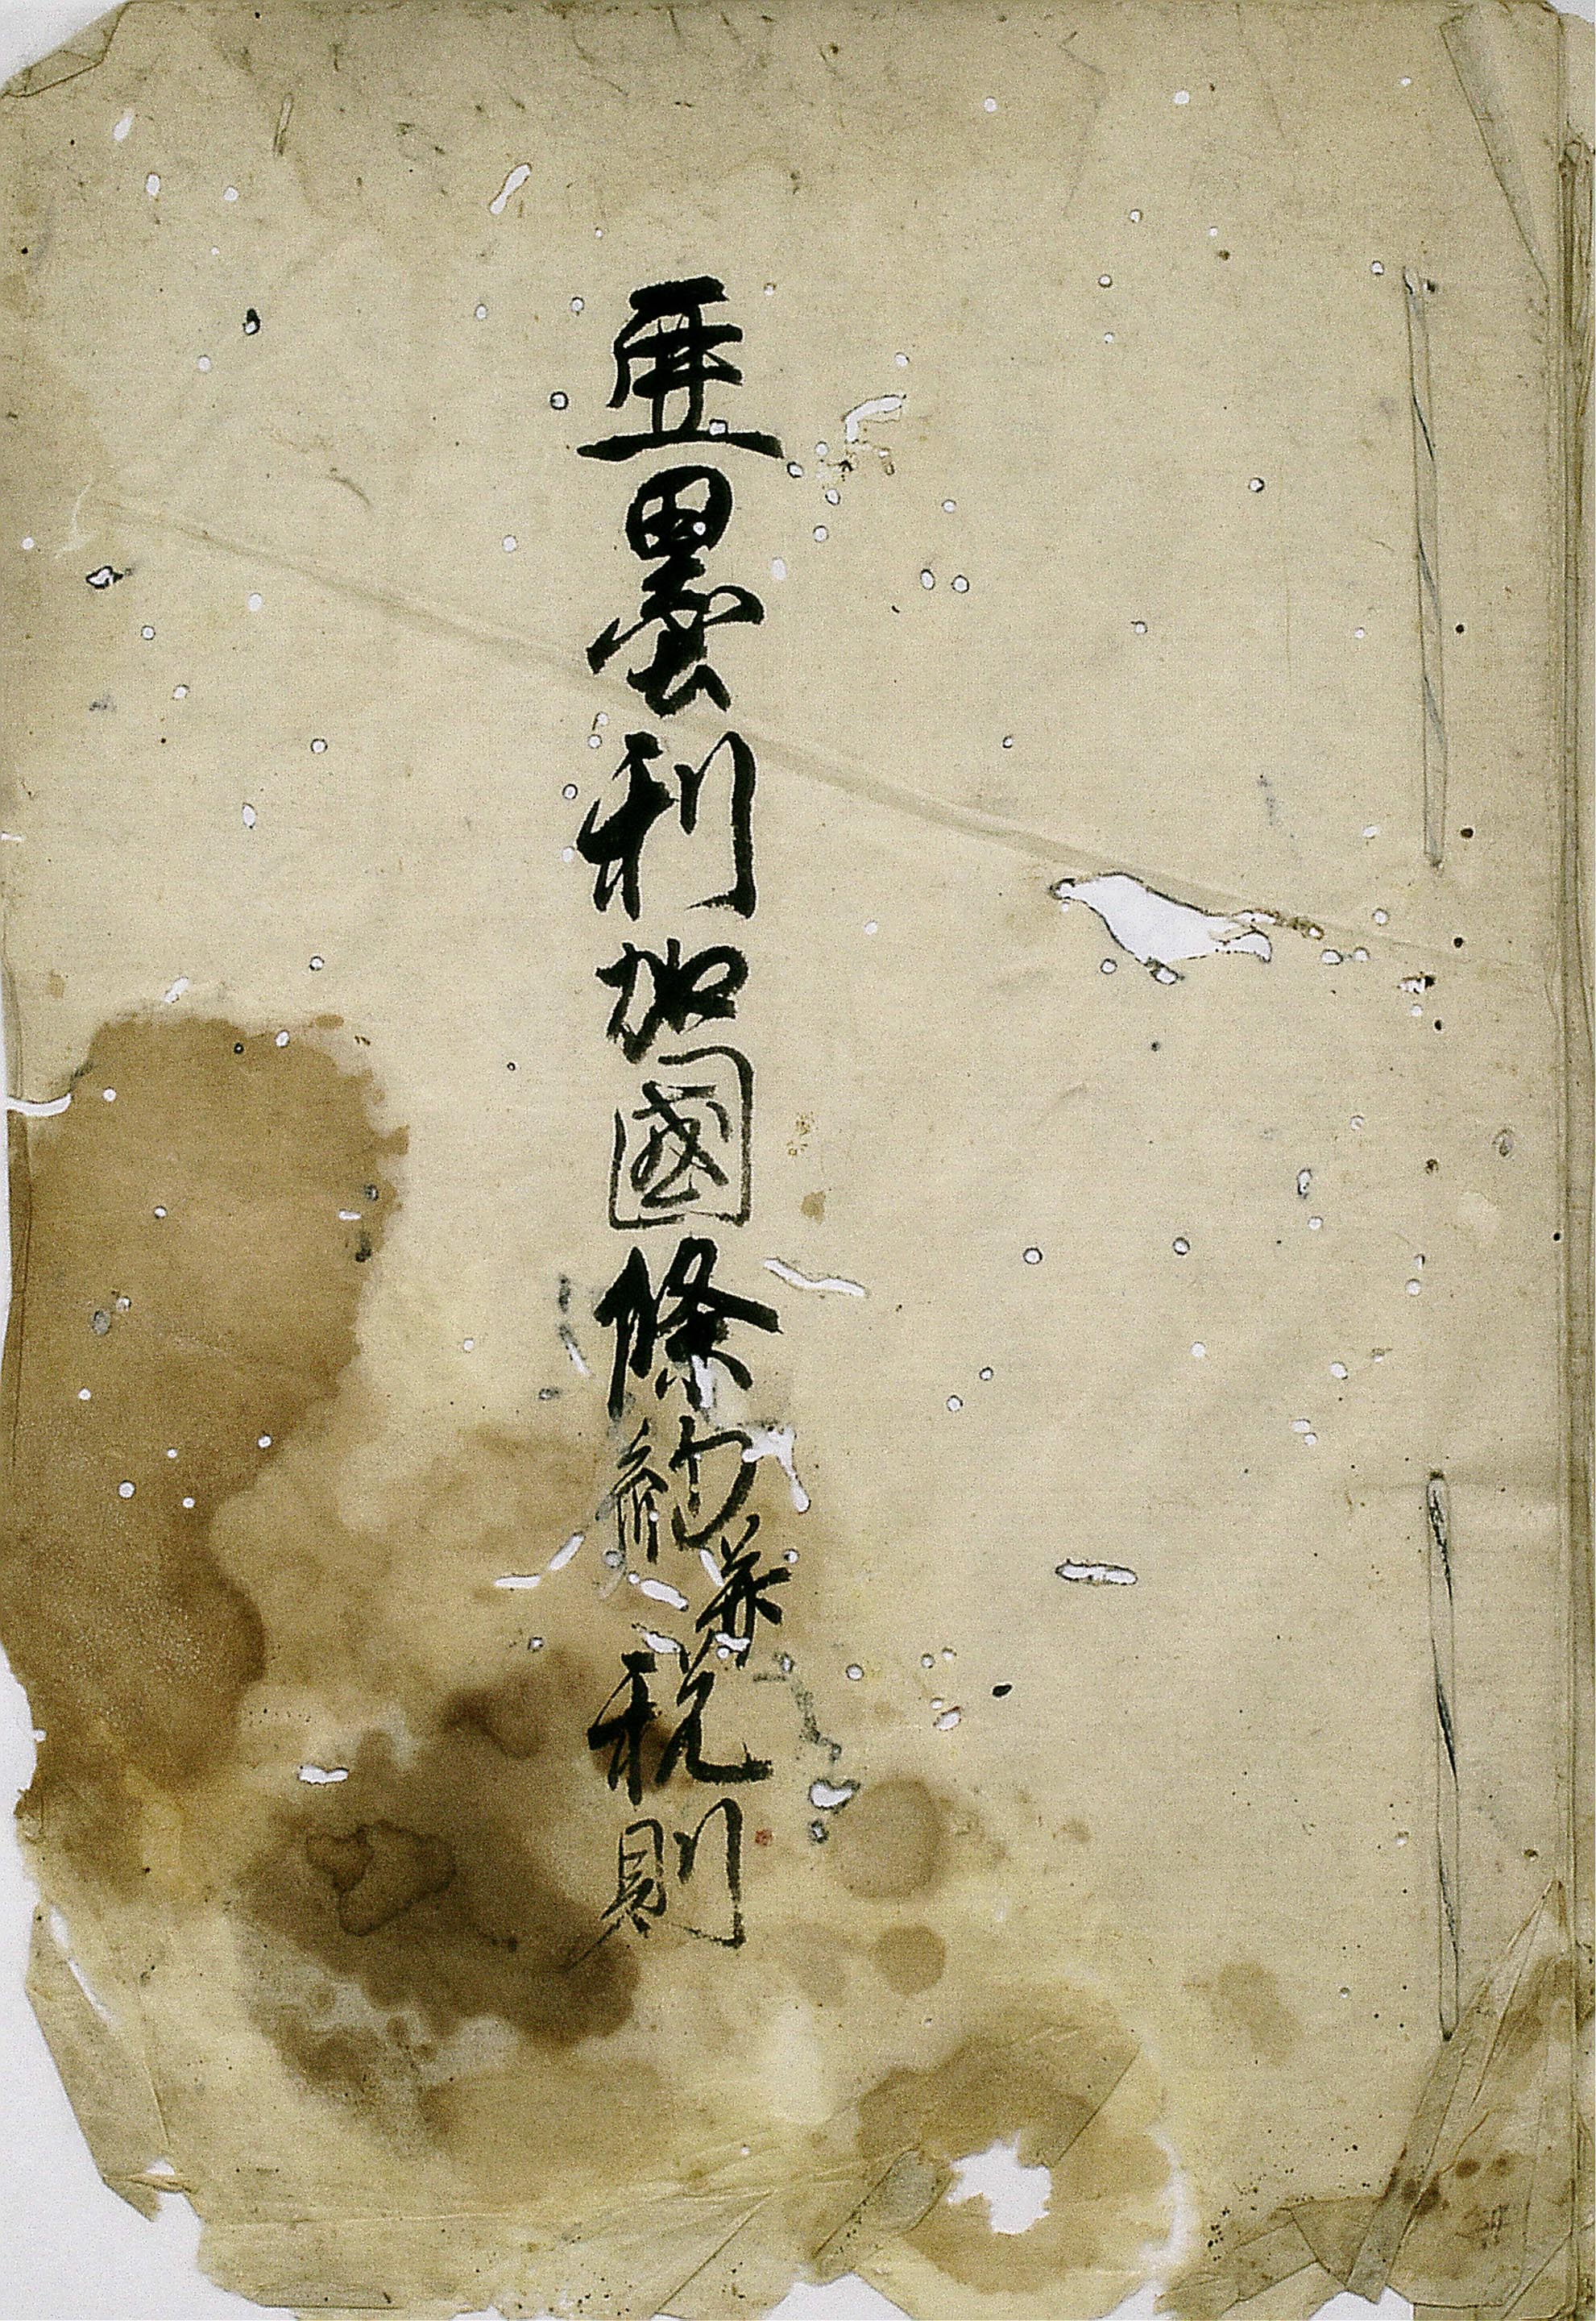 亜墨利加國條約并税則